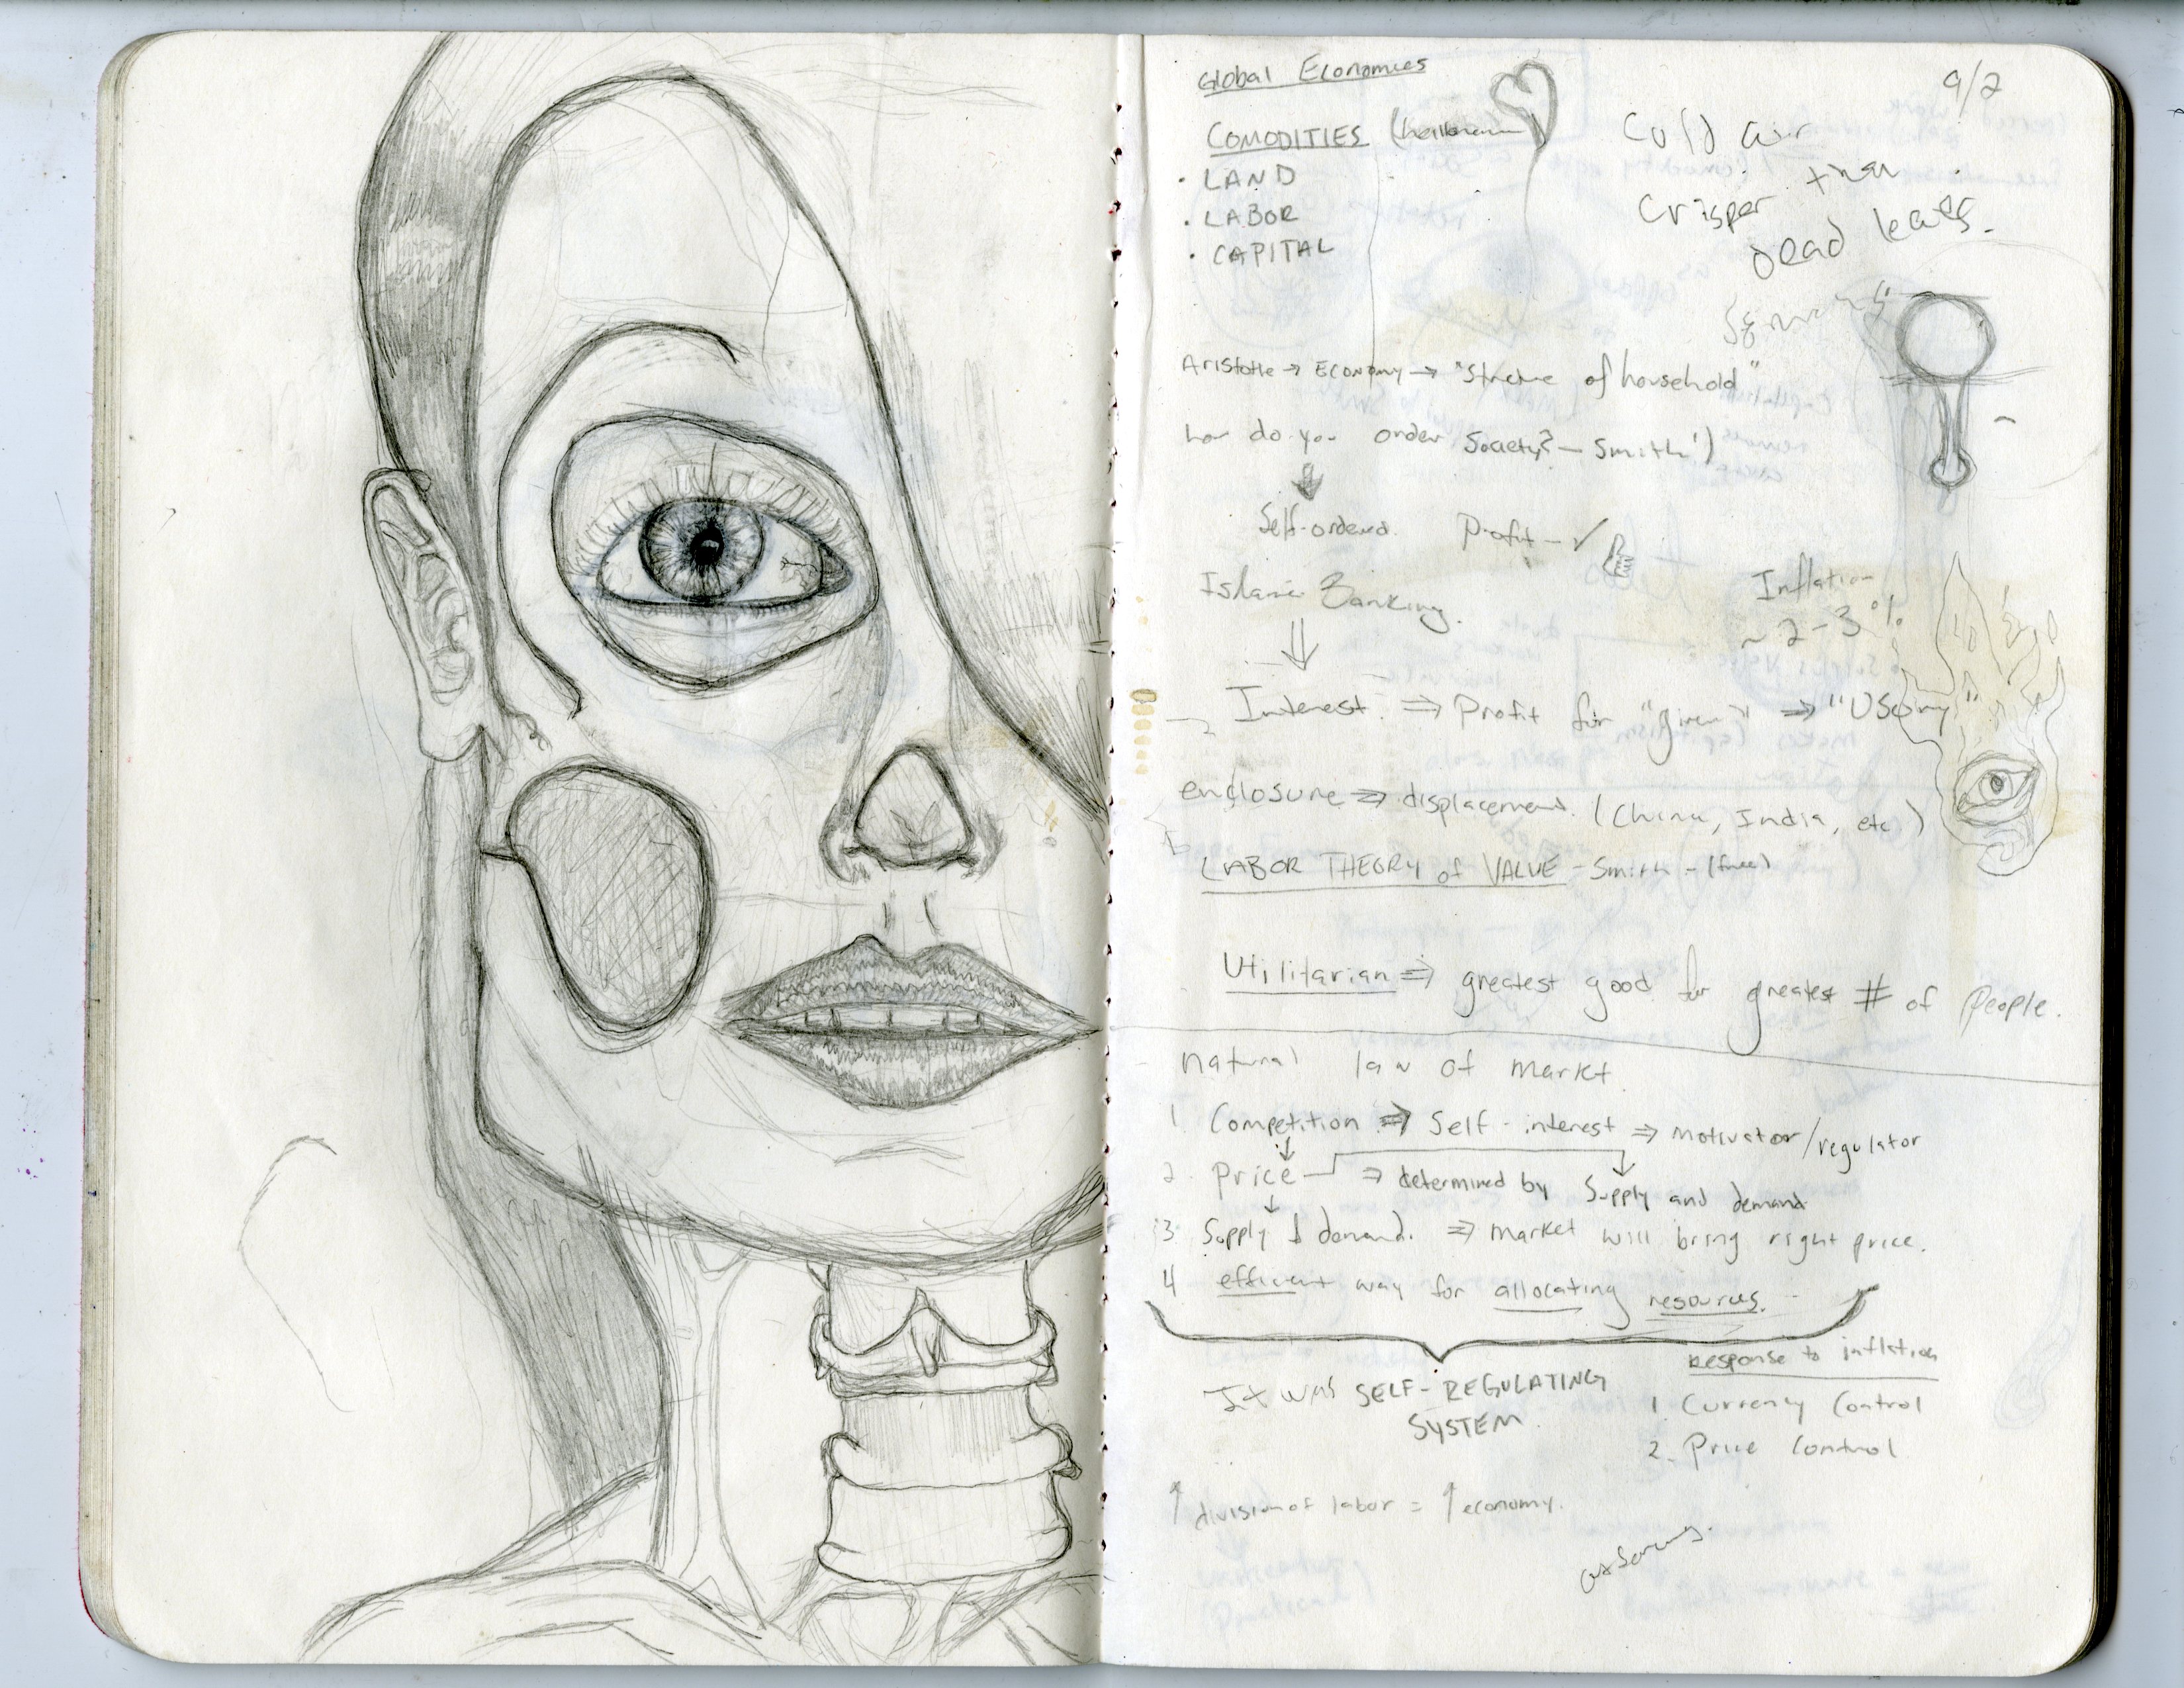 Global Economies
9/2
COMODITIES
• LAND
• LABOR
• CAPITAL
Cold air
Crisper than
Dead leaves.
Aristotle → Economy → "Structure of household"
how do you order Society? — Smith
Self-ordered. Profit — ✓
Islamic Banking.
Inflation
~ 2-3 %
Interest ⇒ Profit for "given" ⇒ "Usury"
enclosure ⇒ displacement. (China, India, etc.)
LABOR THEORY of VALUE - Smith - (free)
Utilitarian ⇒ greatest good for greatest # of People.
natural law of Markt.
1. Competition ⇒ Self-interest ⇒ motivator/regulator
2. Price ⇒ determined by Supply and demand
3 Supply & demand. ⇒ market will bring right price.
4 efficient way for allocating resources.
It was SELF-REGULATING
SYSTEM.
Response to inflation
1. Currency Control
2. Price Control
↑ division of labor = ↑ economy.